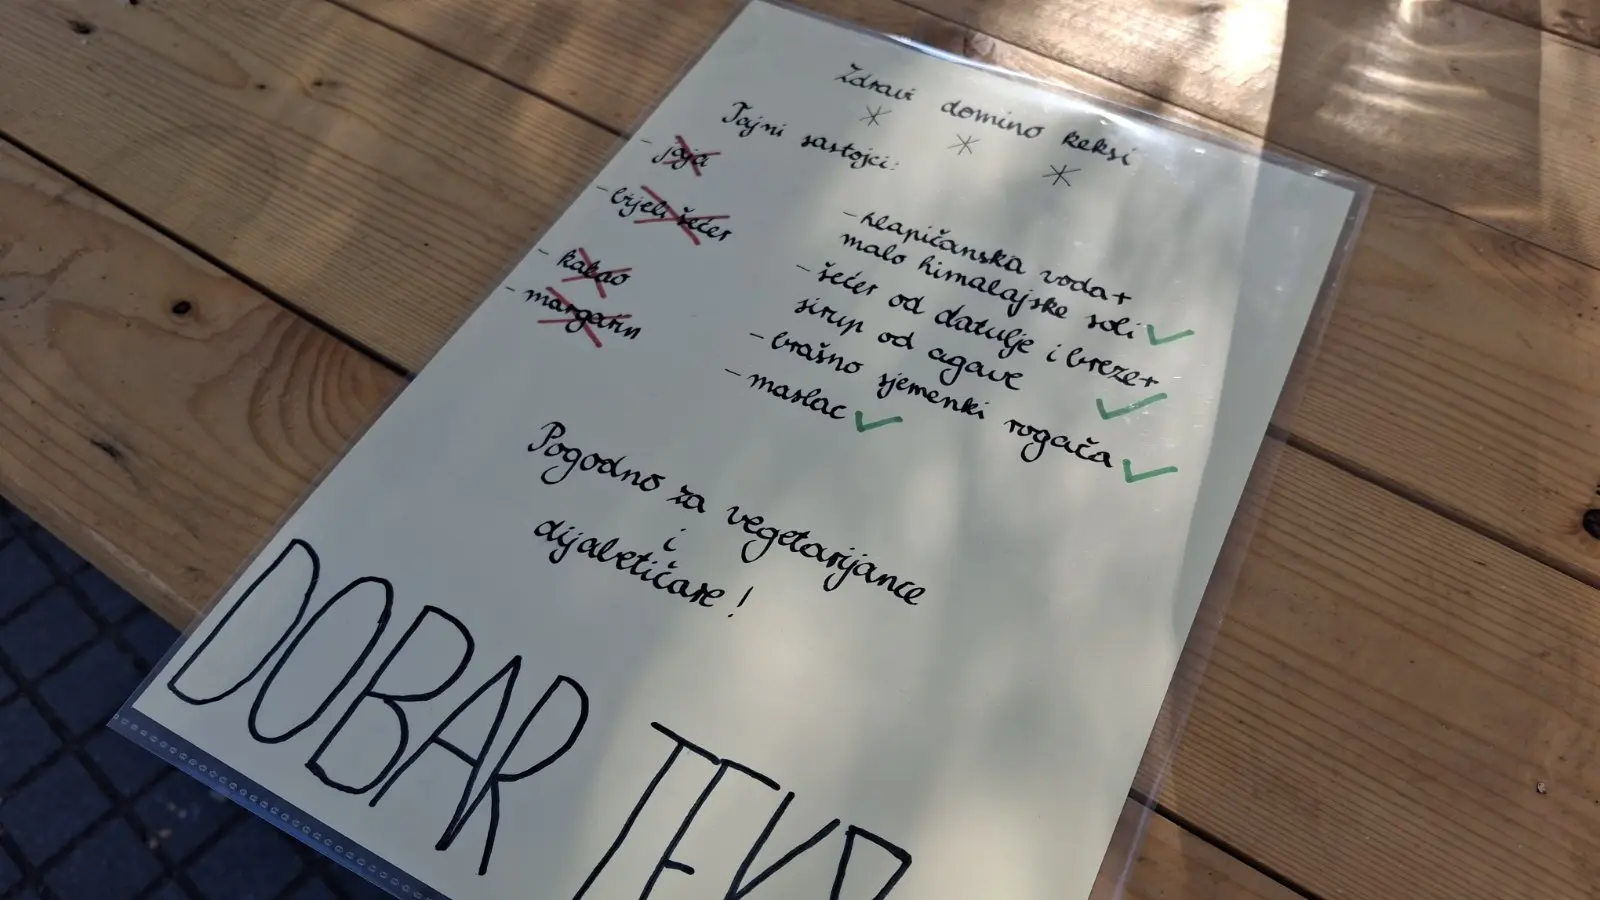 Zdravi domino keksi
Tajni sastojci:
- jaja
- bijeli šećer
- kakao
- margarin
- klapičanska voda+
malo himalajske soli
- šećer od datulje i breze+
sirup od agave
- brašno sjemenki rogača
- maslac
Pogodno za vegetarijance
i
dijabetičare!
DOBAR TEK